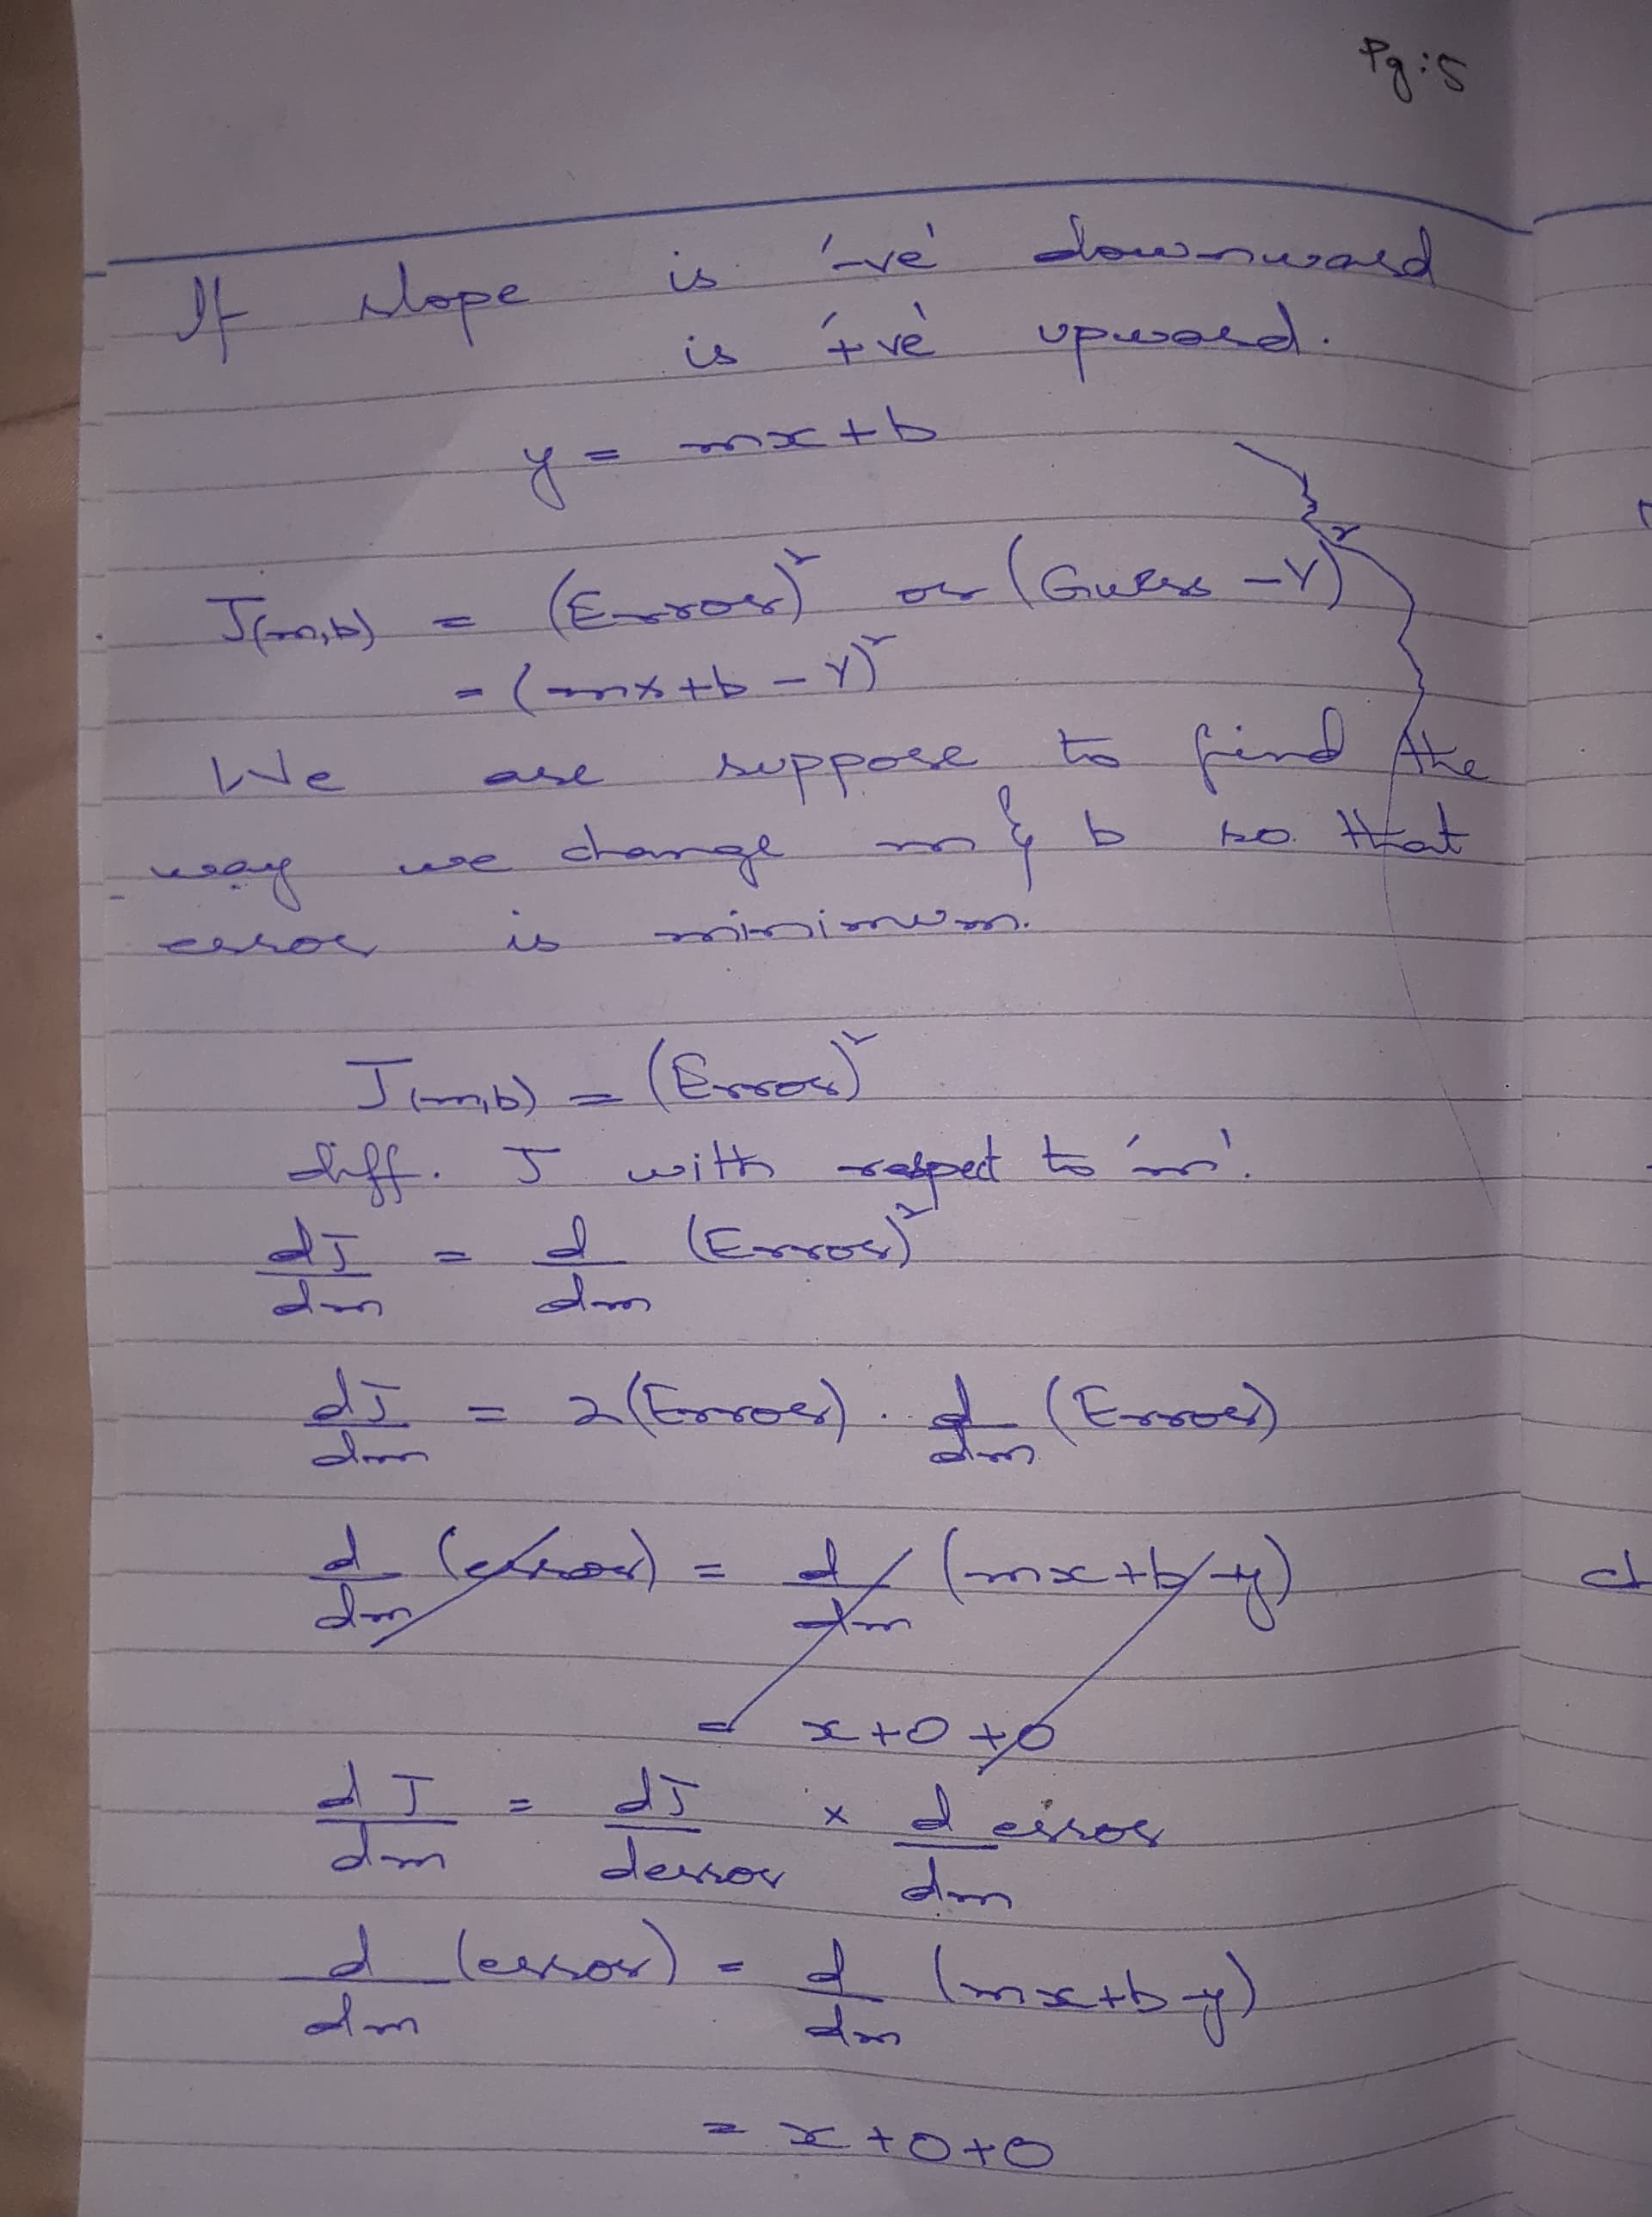 Pg:5
If slope is '-ve' downward
is '+ve' upward.
y = mx+b
J(m,b) = (Error)² or (Guess - Y)²
= (mx+b - Y)²
We are suppose to find the
way we change m & b so that
error is minimum.
J(m,b) = (Error)²
diff. J with respect to 'm'.
dJ/dm = d/dm (Error)²
dJ/dm = 2(Error) . d/dm (Error)
d/dm (error) = d/dm (mx+b-y)
= x+0+0
dJ/dm = dJ/derror × d error/dm
d/dm (error) = d/dm (mx+b-y)
= x+0+0